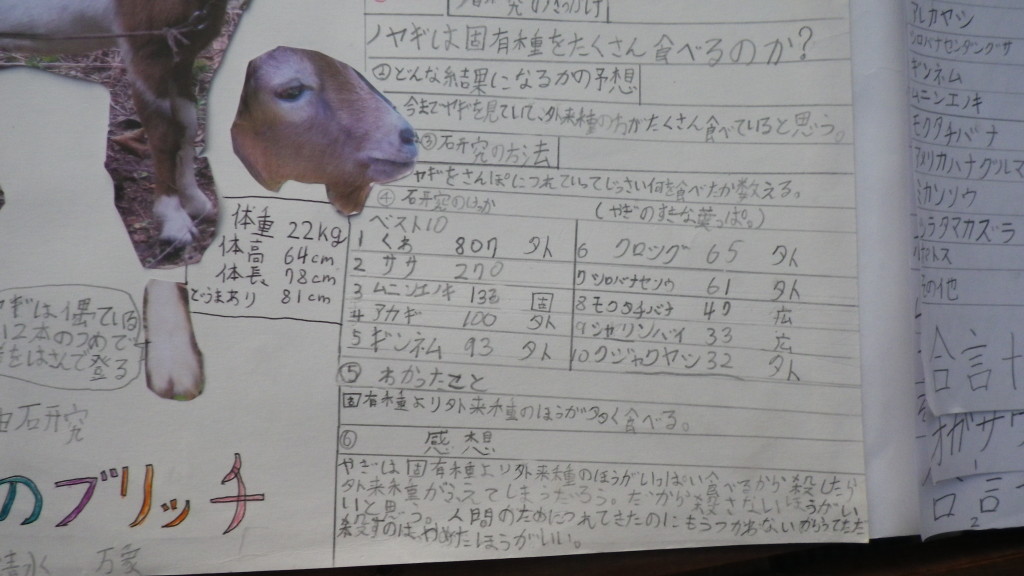 研究のきっかけ
ノヤギは固有種をたくさん食べるのか?
②どんな結果になるかの予想
・今までヤギを見ていて、外来種の方がたくさん食べていると思う。
③研究の方法
ヤギをさんぽにつれていってじっさい何を食べたか数える。
④研究のけっか (やぎのすきな葉っぱ。)
ベスト10
1 くわ 807 外
2 ササ 270
3 ムニンエノキ 133 固
4 アカギ 100 外
5 ギンネム 93 外
6 クロツグ 65 外
7 シロバナセンソウ 61 外
8 モクタチバナ 47 広
9 シャリンバイ 33 広
10 クジャクヤシ 32 外
⑤ わかったこと
固有種より外来種のほうが多く食べる。
⑥ 感想
やぎは固有種より外来種のほうがいっぱい食べるから殺したら
外来種がふえてしまうだろう。だから殺さないほうがいい
いと思う。人間のためにつれてきたのにもうつかわないからってただ
殺すのは、やめたほうがいい。
体重 22kg
体高 64cm
体長 78cm
どうまわり 81cm
ヤギは偶てい目
12本のつめで
をはさんで登る
由研究
のブリッチ
清水 万象
アレカヤシ
シロバナセンダングサ
ギンネム
ムニンエノキ
モクタチバナ
アメリカハナグルマ
ミカンソウ
マトス
その他
合計
オガサワ
合計
2